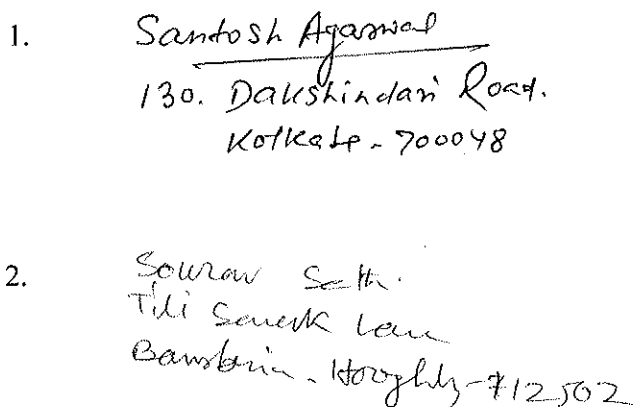 1. Santosh Agarwal
130. Dakshindari Road.
Kolkata - 700048
2. Sourav Seth.
Tili Lane
Bansberia - Hooghly - 712502